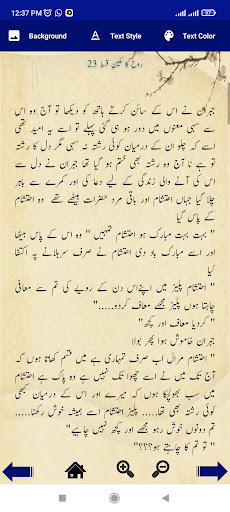 12:37 PM
Background
Text Style
Text Color
روح کا مکین قسط 23
جبران نے اس کے سائن کرتے ہاتھ کو دیکھا تو آج وہ اس
سے سہی معنوں میں دور ہو ہی گئی پہلے تو اسے یہ امید تھی
اسے کہ چلو ان کے درمیان کوئی رشتہ نہ سہی مگر دل کا رشتہ
تو ہے نا آج وہ رشتہ بھی ختم ہو گیا تھا جبران نے دل سے
اس کی آنے والی زندگی کے لیے دعا کی اور کمرے سے باہر
چلا گیا جہاں احتشام اور باقی مرد حضرات بیٹھے تھے وہ احتشام
کے پاس گیا
" بہت بہت مبارک ہو احتشام تمہیں " وہ اس کے پاس بیٹھا
اور اسے مبارک باد دی احتشام نے صرف سرہلانے پہ اکتفا
کیا
" احتشام پلیز میں اپنےاس دن کے رویے کی تم سے معافی
چاہتا ہوں پلیز مجھے معاف کردو....."
" کردیا معاف اور کچھ "
جبران خاموش ہوا پھر بولا
" احتشام مرال اب صرف تمہاری ہے میں قسم کھاتا ہوں کہ
آج تک میں نے اسے چھوا تک نہیں ہے وہ پاک ہے احتشام
میں سب بھولچکا ہوں کہ میرے اور اس کے درمیان کبھی
کوئی رشتہ بھی تھا..... پلیزز احتشام اسے ہمیشہ خوش رکھنا.....
تم دونوں خوش رہو مجھے اور کچھ نہیں چاہیے"
" تو تم کیا چاہتے ہو؟؟؟"